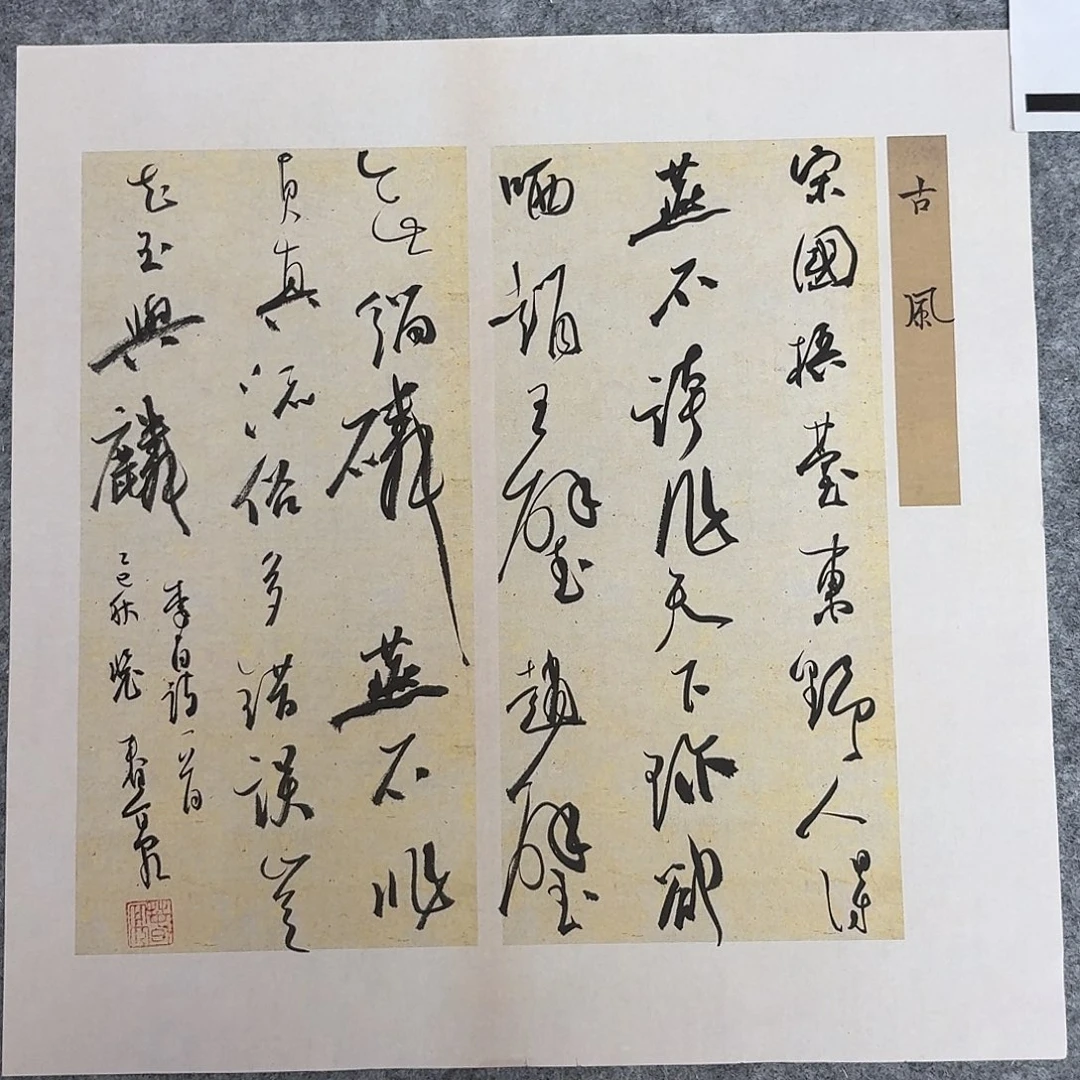 古風
宋國梧臺東野人得
燕石誇作天下珍卻
哂趙王璧趙璧
無緇磷燕石非
貞真流俗多錯誤豈
知玉與麟
李白詩一首
乙巳秋